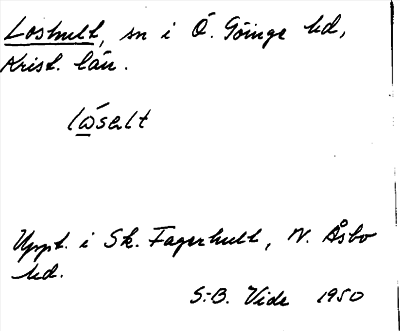 Loshult, sn i Ö. Göinge hd,
Krist. län.
lòsalt
Uppt. i Sk. Fagerhult, N. Åsbo
hd.
S.-B. Vide 1950